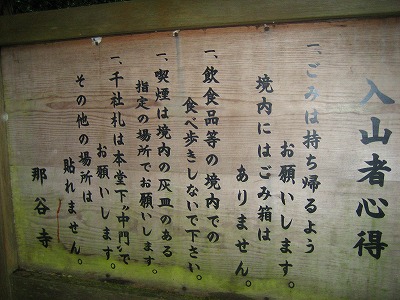 入山者心得
一、ごみは持ち帰るよう
お願いします。
境内にはごみ箱は
ありません。
一、飲食品等の境内での
食べ歩きしないで下さい。
一、喫煙は境内の灰皿のある
指定の場所でお願いします。
一、千社札は本堂下〝中門〟で
お願いします。
その他の場所は
貼れません。
那谷寺